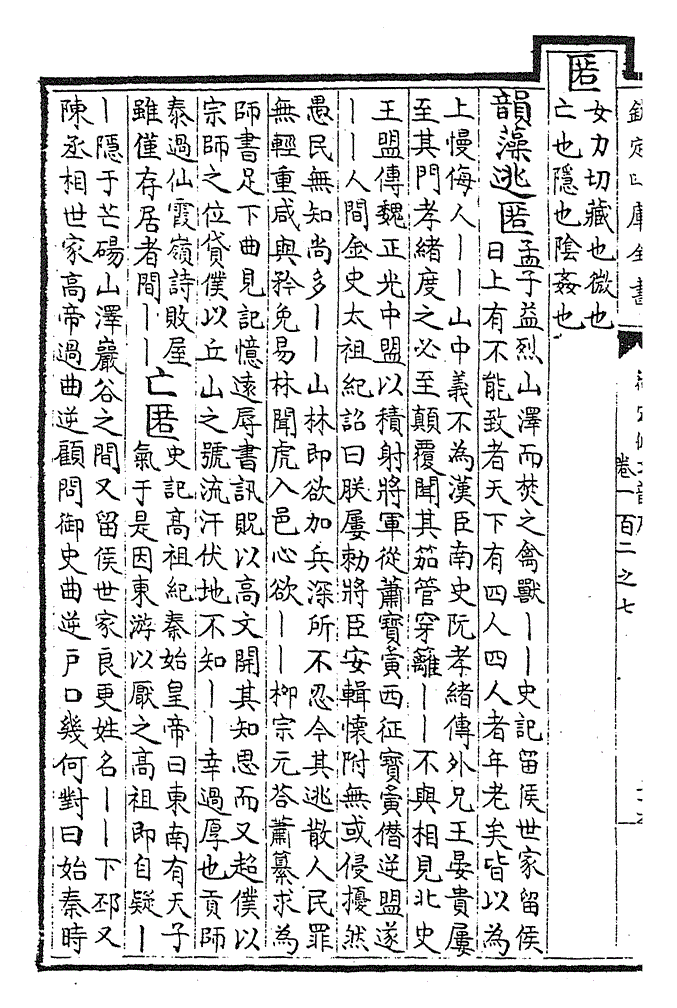 卷一百二之七
匿
女力切藏也微也
亡也隱也陰姦也
韻藻逃匿
孟子益烈山澤而焚之禽獸丨丨史記留侯世家留侯
日上有不能致者天下有四人四人者年老矣皆以為
上慢侮人丨丨山中義不為漢臣南史阮孝緒傳外兄王晏貴屢
至其門孝緒度之必至顛覆聞其笳管穿籬丨丨不與相見北史
王盟傳魏正光中盟以積射將軍從蕭寶夤西征寶夤僭逆盟遂
丨丨人間金史太祖紀詔曰朕屢勅將臣安輯懷附無或侵擾然
愚民無知尚多丨丨山林即欲加兵深所不忍今其逃散人民罪
無輕重咸與矜免易林聞虎入邑心欲丨丨柳宗元荅蕭纂求為
師書足下曲見記憶遠辱書訊貺以高文開其知思而又超僕以
宗師之位貸僕以丘山之號流汗伏地不知丨丨幸過厚也貢師
泰過仙霞嶺詩敗屋
雖僅存居者間丨丨
亡匿
史記高祖紀秦始皇帝曰東南有天子
氣于是因東游以厭之高祖即自疑丨
丨隱于芒碭山澤巖谷之間又留侯世家良更姓名丨丨下邳又
陳丞相世家高帝過曲逆顧問御史曲逆戶口幾何對曰始秦時